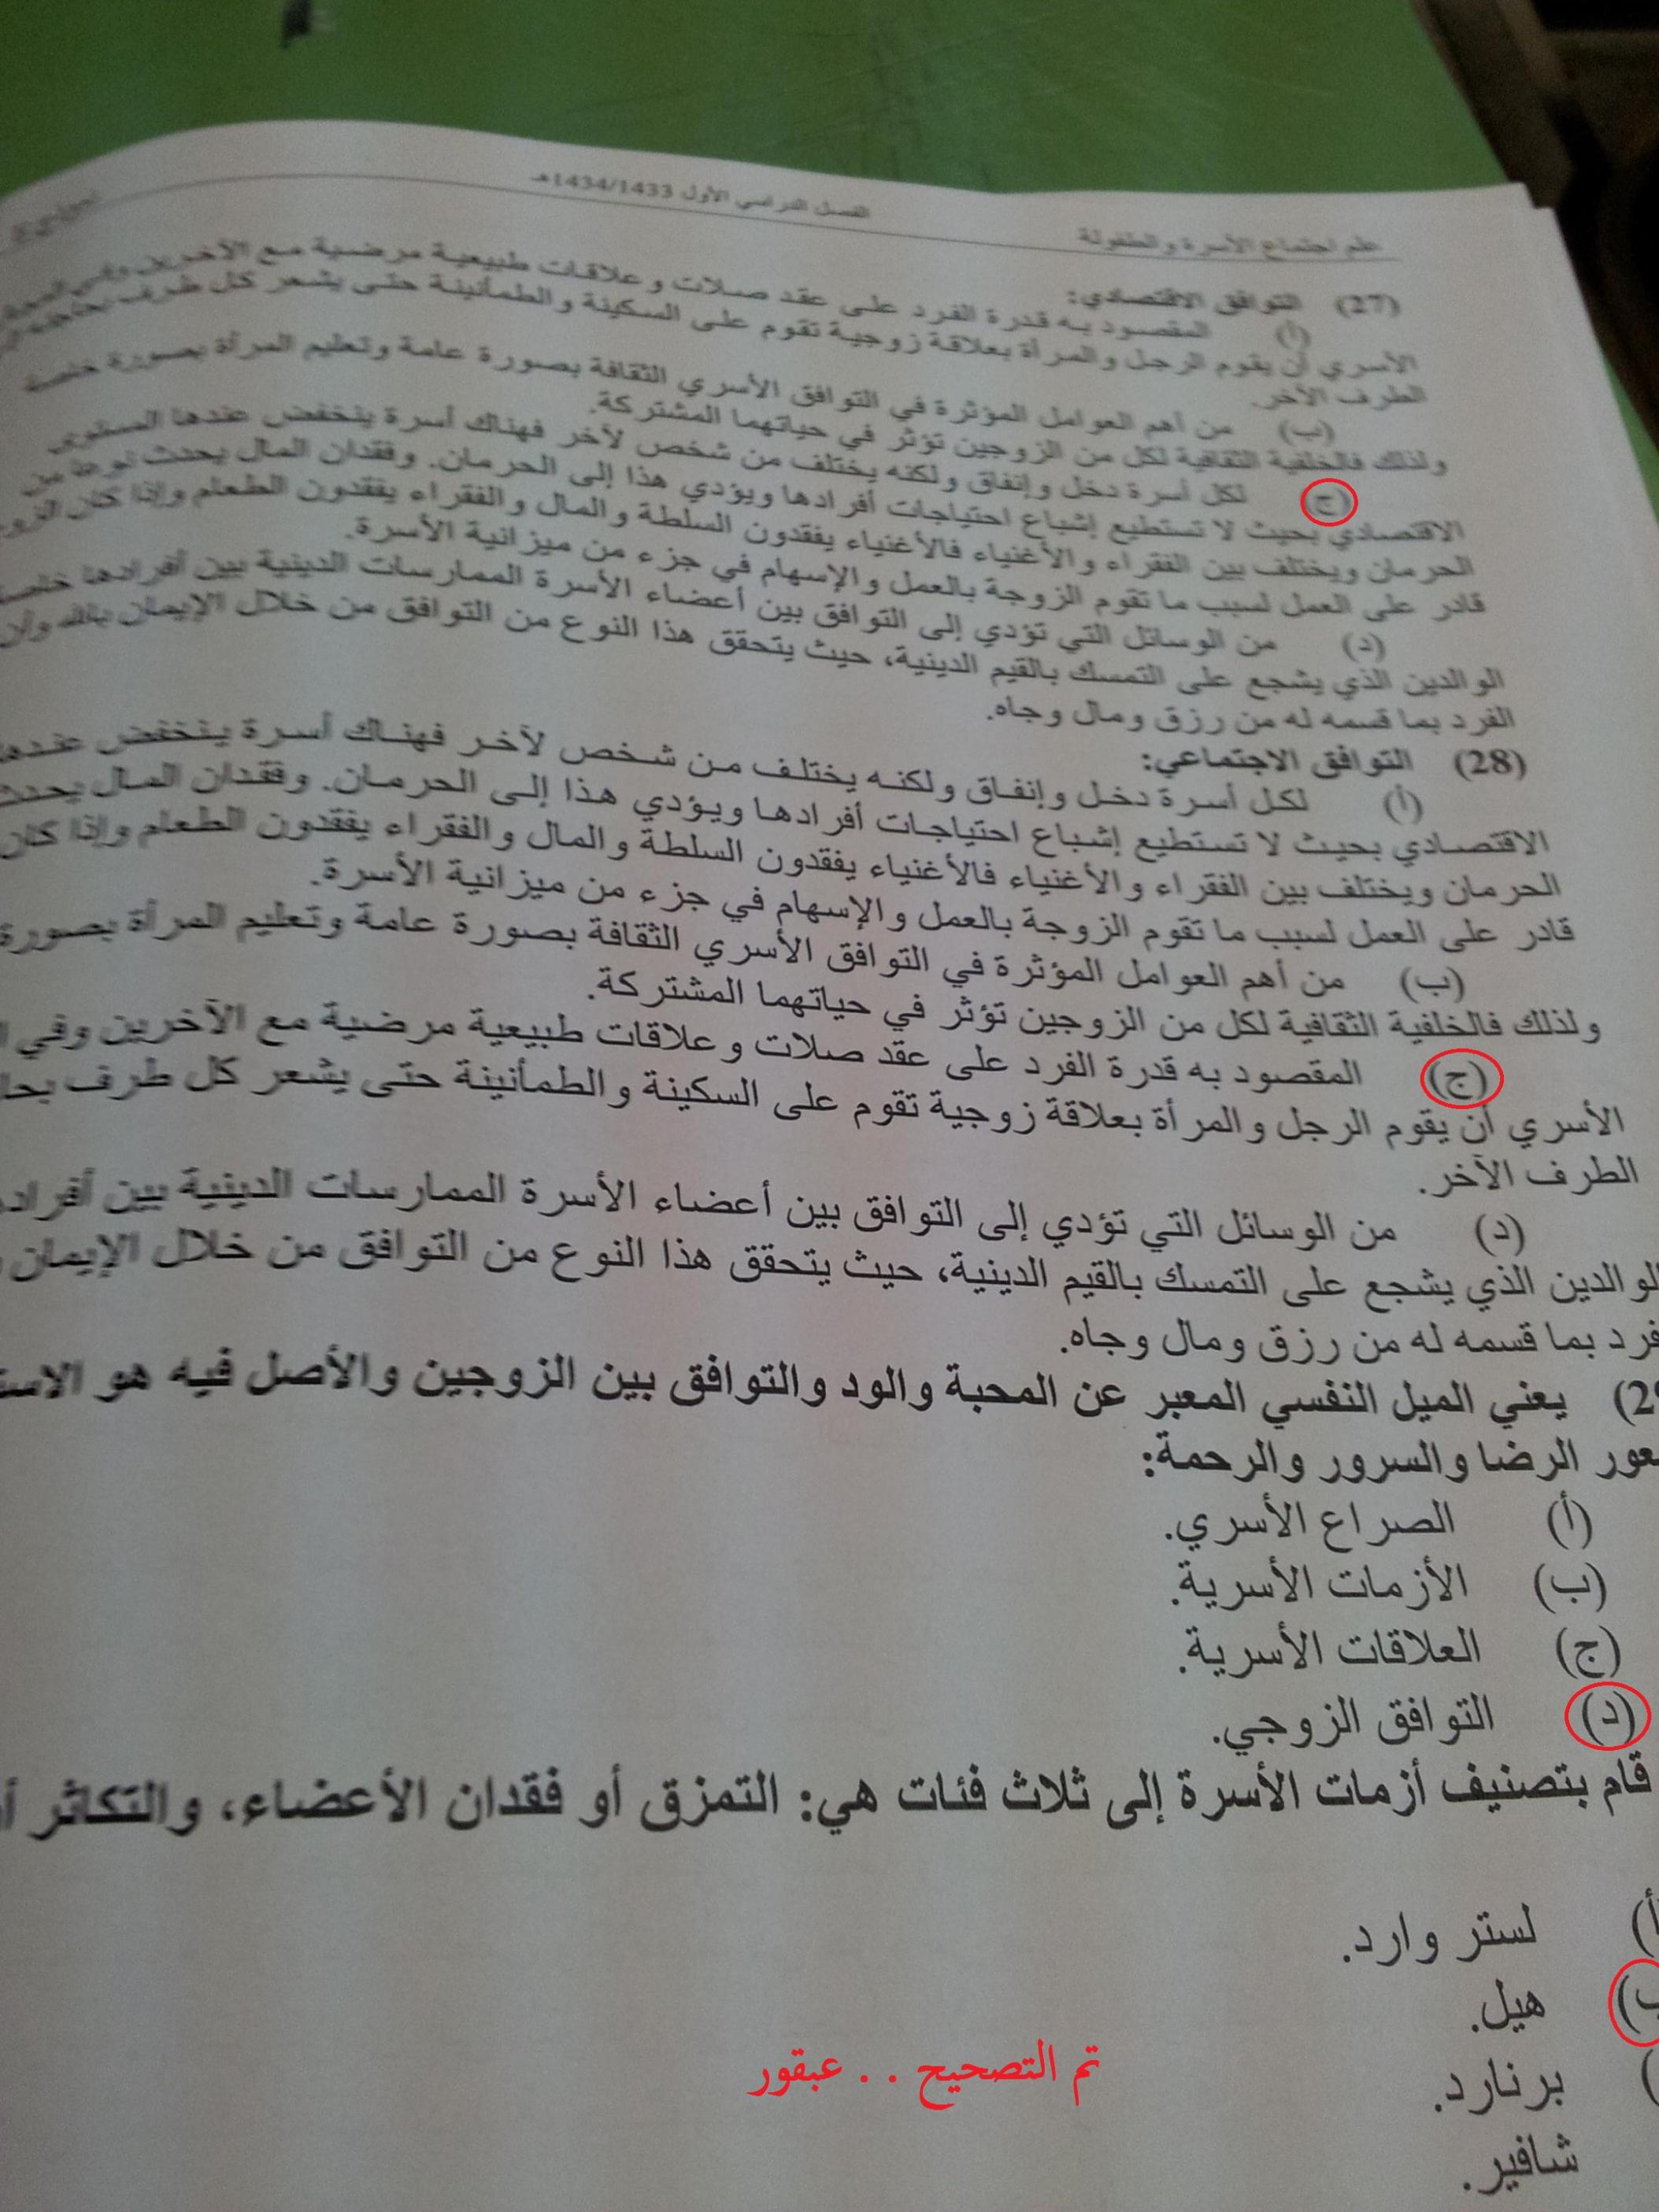 علم اجتماع الأسرة والطفولة الفصل الدراسي الأول 1434/1433هـ
(27) التوافق الاقتصادي:
(أ) المقصود به قدرة الفرد على عقد صلات وعلاقات طبيعية مرضية مع الآخرين وفي
الأسري أن يقوم الرجل والمرأة بعلاقة زوجية تقوم على السكينة والطمأنينة حتى يشعر كل طرف
الطرف الآخر.
(ب) من أهم العوامل المؤثرة في التوافق الأسري الثقافة بصورة عامة وتعليم المرأة بصورة خاصة
ولذلك فالخلفية الثقافية لكل من الزوجين تؤثر في حياتهما المشتركة.
(ج) لكل أسرة دخل وإنفاق ولكنه يختلف من شخص لآخر فهناك أسرة ينخفض عندها المستوى
الاقتصادي بحيث لا تستطيع إشباع احتياجات أفرادها ويؤدي هذا إلى الحرمان. وفقدان المال يحدث نوعا من
الحرمان ويختلف بين الفقراء والأغنياء فالأغنياء يفقدون السلطة والمال والفقراء يفقدون الطعام وإذا كان الزوج
قادر على العمل لسبب ما تقوم الزوجة بالعمل والإسهام في جزء من ميزانية الأسرة.
(د) من الوسائل التي تؤدي إلى التوافق بين أعضاء الأسرة الممارسات الدينية بين أفرادها خاصة
الوالدين الذي يشجع على التمسك بالقيم الدينية، حيث يتحقق هذا النوع من التوافق من خلال الإيمان بالله وأن
الفرد بما قسمه له من رزق ومال وجاه.
(28) التوافق الاجتماعي:
(أ) لكل أسرة دخل وإنفاق ولكنه يختلف من شخص لآخر فهناك أسرة ينخفض عندها
الاقتصادي بحيث لا تستطيع إشباع احتياجات أفرادها ويؤدي هذا إلى الحرمان. وفقدان المال يحدث
الحرمان ويختلف بين الفقراء والأغنياء فالأغنياء يفقدون السلطة والمال والفقراء يفقدون الطعام وإذا كان
قادر على العمل لسبب ما تقوم الزوجة بالعمل والإسهام في جزء من ميزانية الأسرة.
(ب) من أهم العوامل المؤثرة في التوافق الأسري الثقافة بصورة عامة وتعليم المرأة بصورة
ولذلك فالخلفية الثقافية لكل من الزوجين تؤثر في حياتهما المشتركة.
(ج) المقصود به قدرة الفرد على عقد صلات وعلاقات طبيعية مرضية مع الآخرين وفي
الأسري أن يقوم الرجل والمرأة بعلاقة زوجية تقوم على السكينة والطمأنينة حتى يشعر كل طرف
الطرف الآخر.
(د) من الوسائل التي تؤدي إلى التوافق بين أعضاء الأسرة الممارسات الدينية بين
لوالدين الذي يشجع على التمسك بالقيم الدينية، حيث يتحقق هذا النوع من التوافق من خلال الإيمان
فرد بما قسمه له من رزق ومال وجاه.
يعني الميل النفسي المعبر عن المحبة والود والتوافق بين الزوجين والأصل فيه هو
عور الرضا والسرور والرحمة:
(أ) الصراع الأسري.
(ب) الأزمات الأسرية.
(ج) العلاقات الأسرية.
(د) التوافق الزوجي.
قام بتصنيف أزمات الأسرة إلى ثلاث فئات هي: التمزق أو فقدان الأعضاء، والتكاثر
لستر وارد.
هيل.
برنارد.
شافير.
تم التصحيح . . عبقور